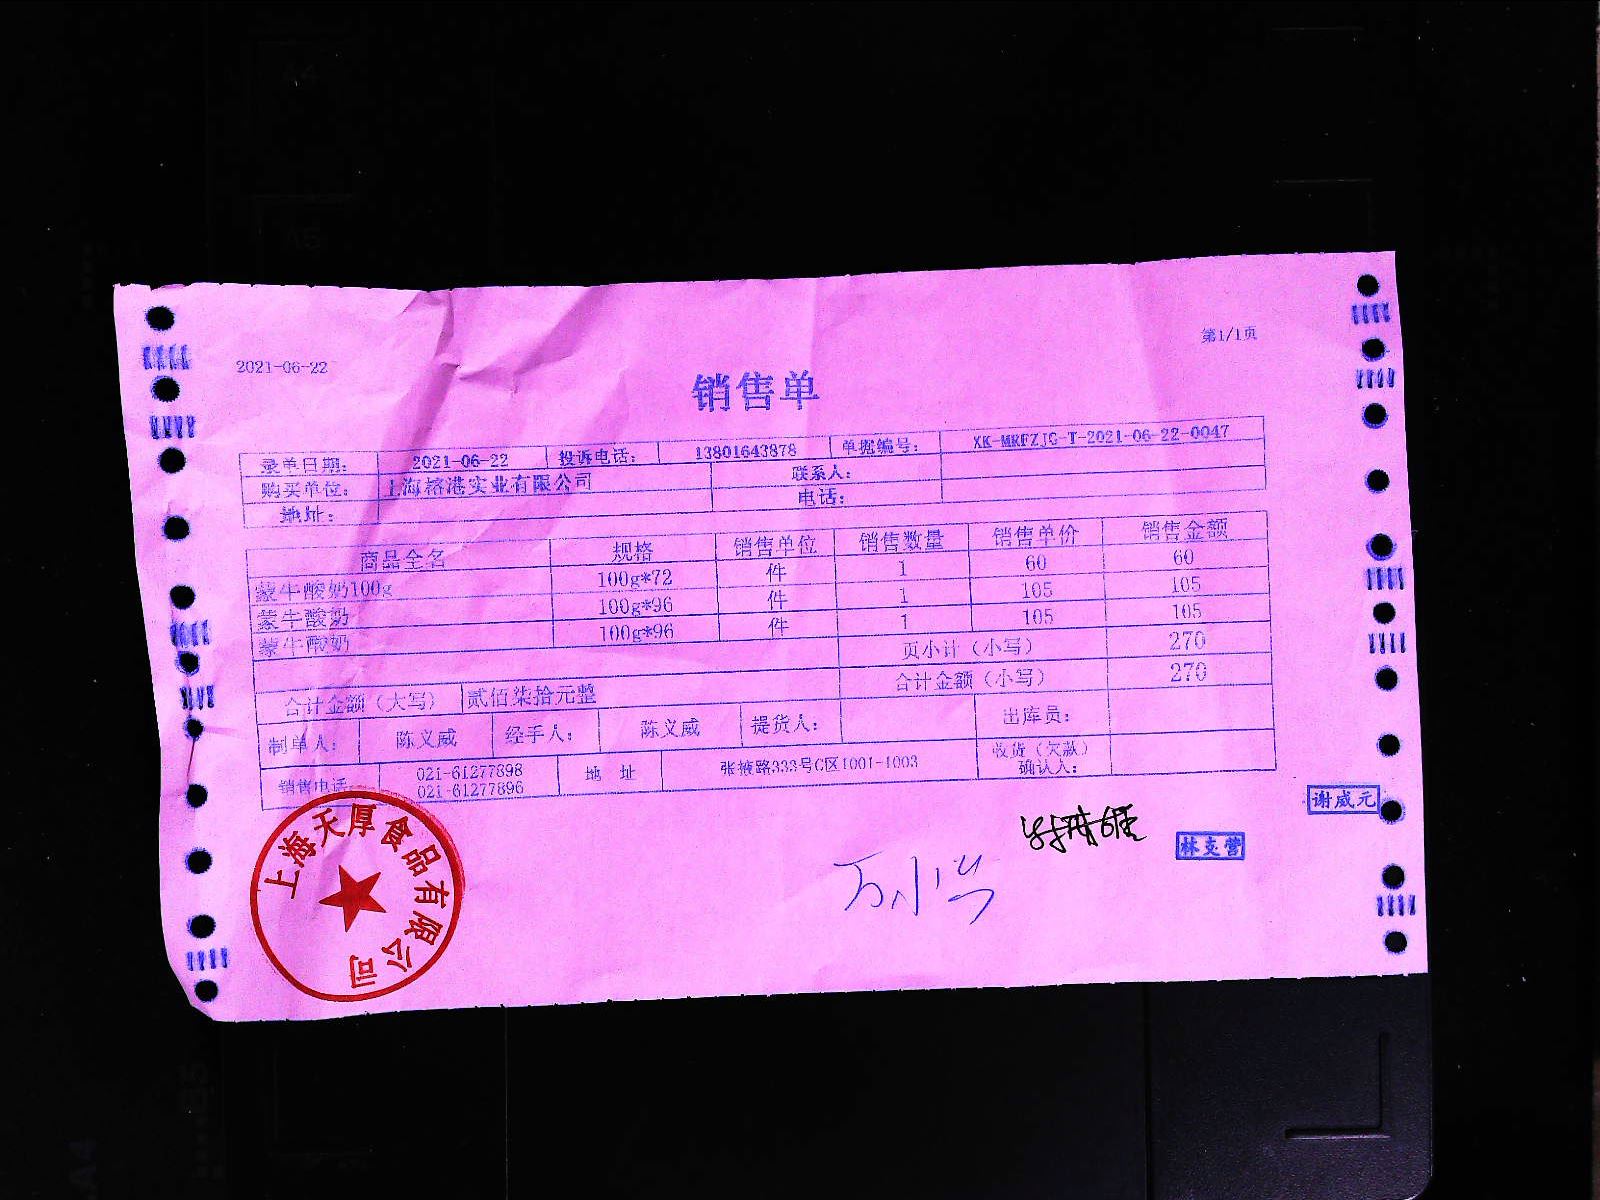 第1/1页
2021-06-22
销售单
录单日期: 2021-06-22 投诉电话: 13801643878 单据编号: XK-MRFZJG-T-2021-06-22-0047
购买单位: 上海榕港实业有限公司 联系人:
地址: 电话:
商品全名 规格 销售单位 销售数量 销售单价 销售金额
蒙牛酸奶100g 100g*72 件 1 60 60
蒙牛酸奶 100g*96 件 1 105 105
蒙牛酸奶 100g*96 件 1 105 105
页小计（小写） 270
合计金额（大写） 贰佰柒拾元整 合计金额（小写） 270
制单人: 陈义威 经手人: 陈义威 提货人: 出库员:
销售电话: 021-61277898 地 址 张掖路333号C区1001-1003 收货（欠款）
021-61277896 确认人:
上海天厚食品有限公司
谢威元
林支营
A4
A5